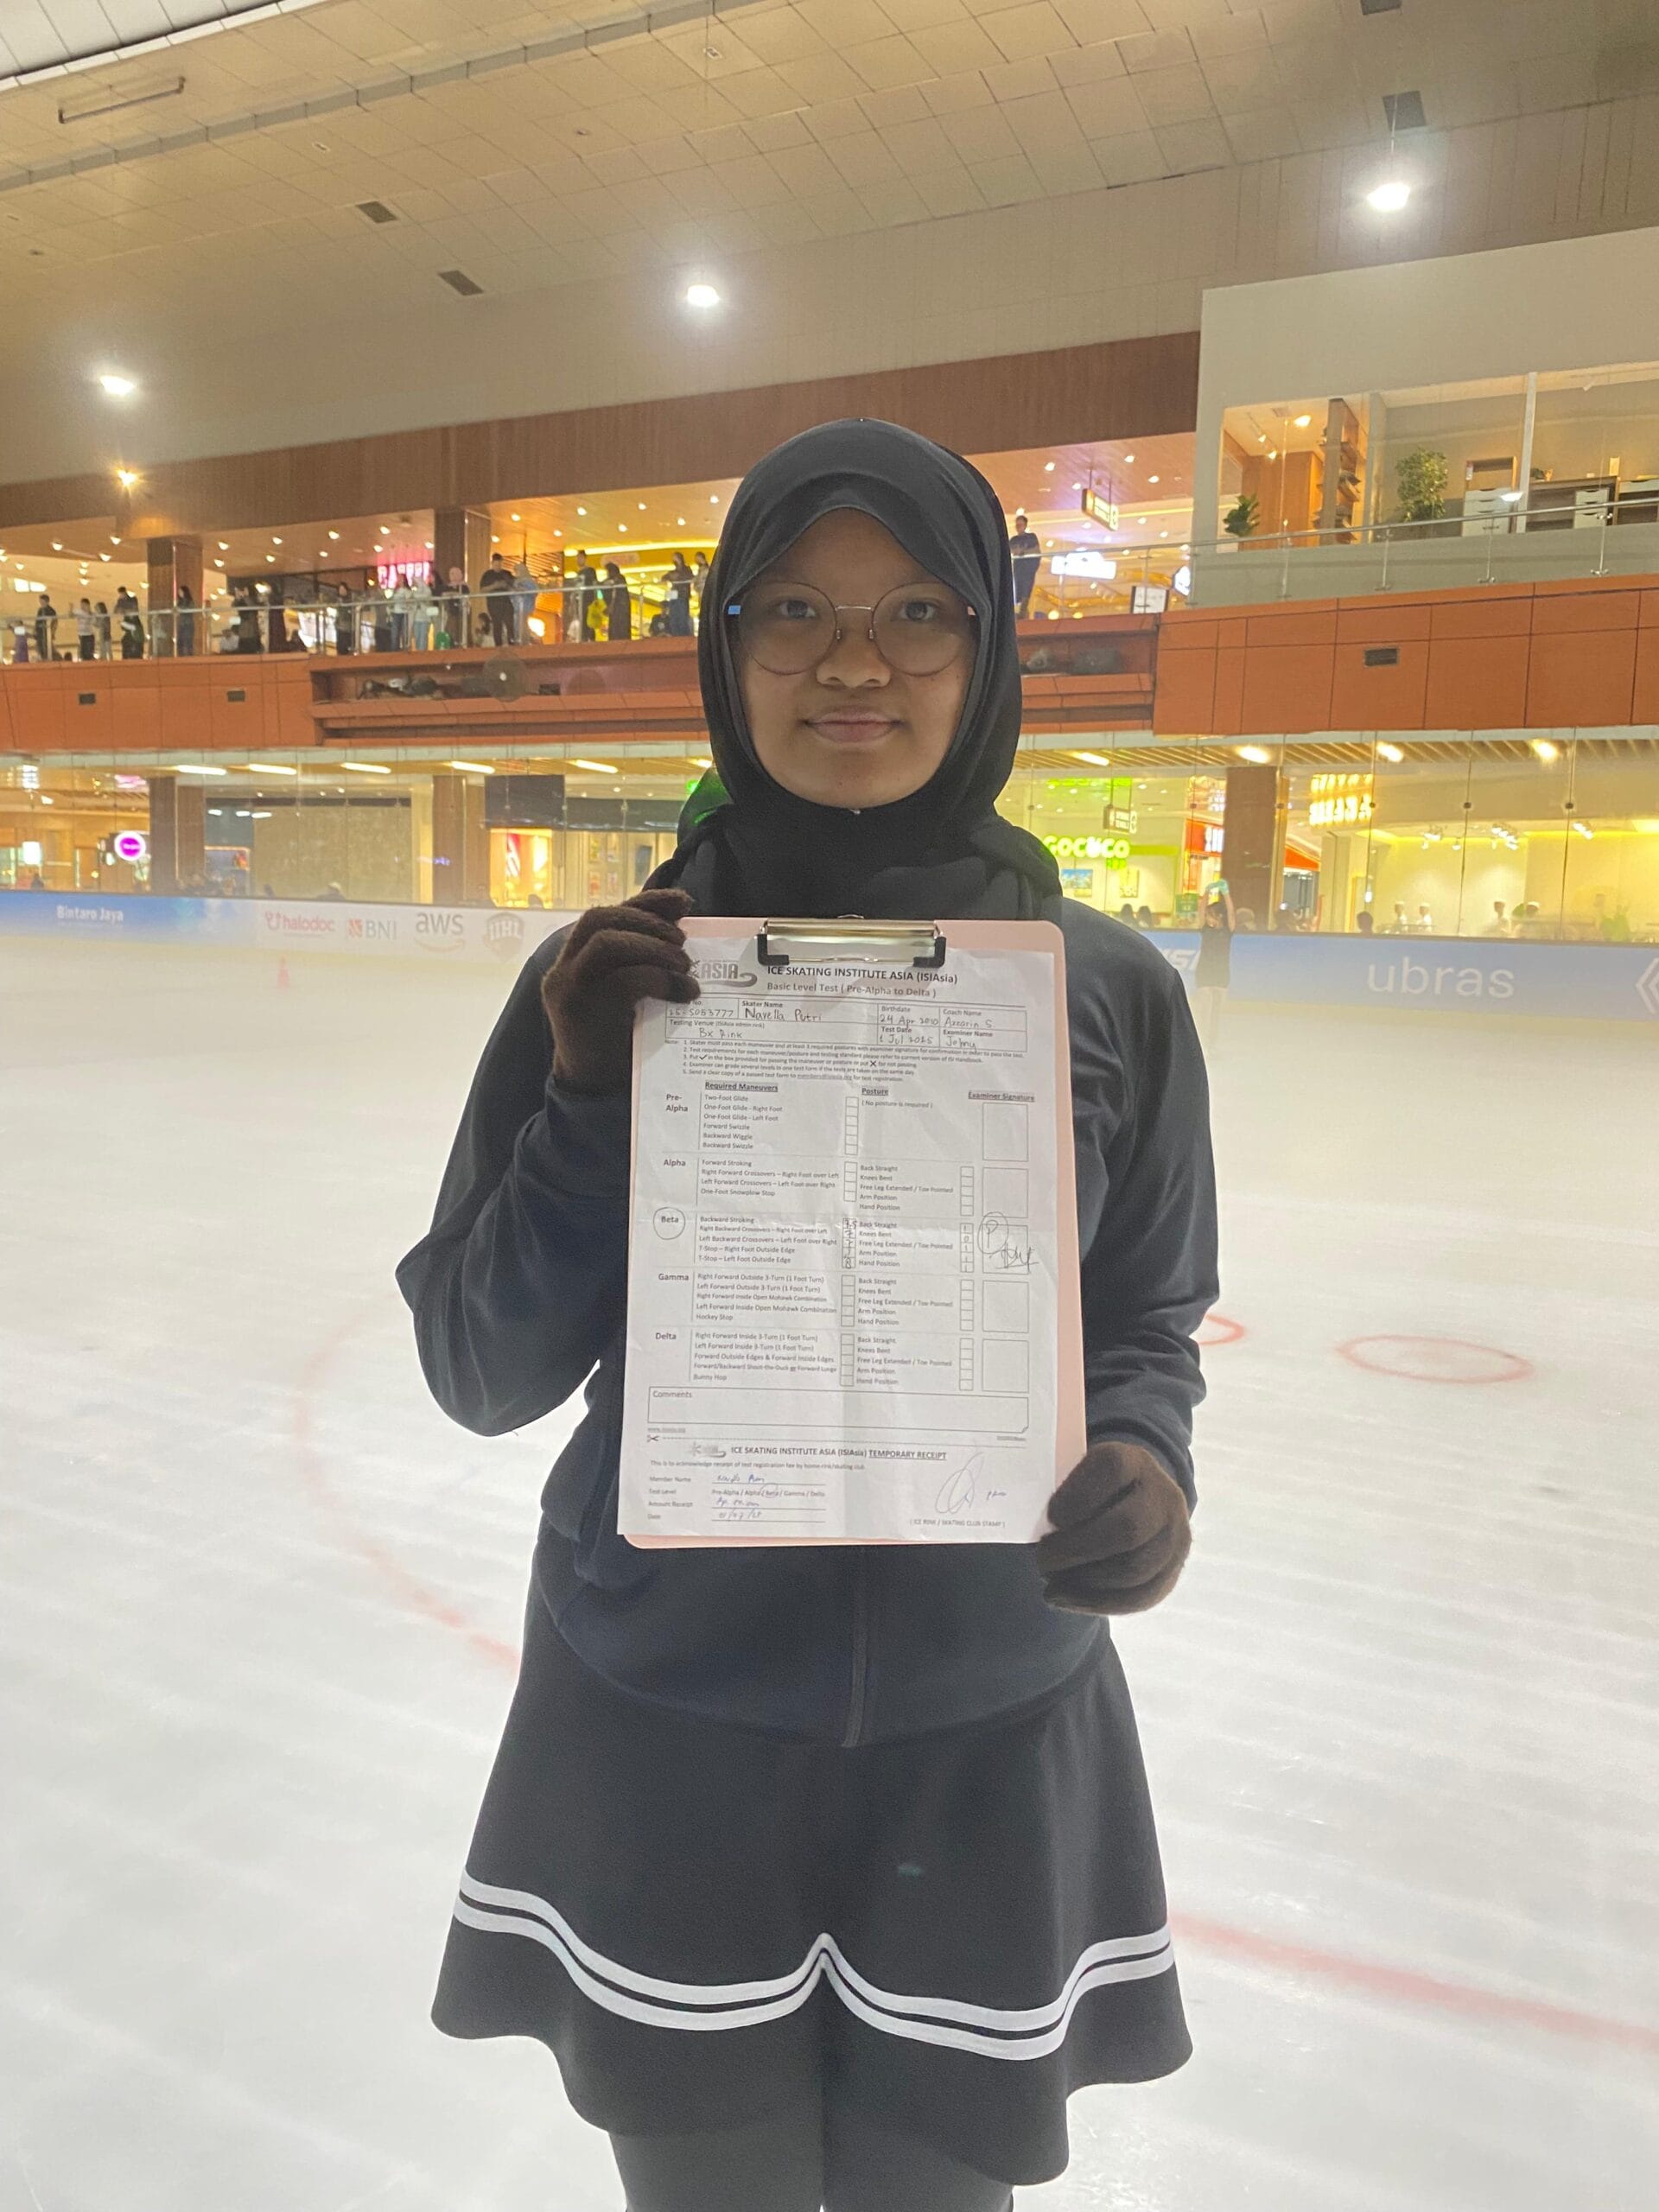 GOCUCO
Bintaro Jaya
halodoc
BNI
aws
IIHL
ubras
ASIA
ICE SKATING INSTITUTE ASIA (ISIAsia)
Basic Level Test ( Pre-Alpha to Delta )
No.
Skater Name
Birthdate
Coach Name
Navella Putri
24 Apr 2010
Testing Venue
Test Date
Examiner Name
Bx Rink
1 Jul 2025
Johny
Note: 1. Skater must pass each maneuver and at least 3 required postures with examiner signature for confirmation in order to pass the test.
2. Test requirements for each maneuver/posture and testing standard please refer to current version of ISI Handbook.
3. Put ✓ in the box provided for passing the maneuver or posture or put ✗ for not passing
4. Examiner can grade several levels in one test form if the tests are taken on the same day
5. Send a clear copy of a passed test form to members@isiasia.org for test registration.
Required Maneuvers
Posture
Examiner Signature
Pre-Alpha
Two-Foot Glide
( No posture is required )
One-Foot Glide - Right Foot
One-Foot Glide - Left Foot
Forward Swizzle
Backward Wiggle
Backward Swizzle
Alpha
Forward Stroking
Back Straight
Right Forward Crossovers – Right Foot over Left
Knees Bent
Left Forward Crossovers – Left Foot over Right
Free Leg Extended / Toe Pointed
One-Foot Snowplow Stop
Arm Position
Hand Position
Beta
Backward Stroking
Back Straight
Right Backward Crossovers – Right Foot over Left
Knees Bent
Left Backward Crossovers – Left Foot over Right
Free Leg Extended / Toe Pointed
T-Stop – Right Foot Outside Edge
Arm Position
T-Stop – Left Foot Outside Edge
8
Hand Position
P
Gamma
Right Forward Outside 3-Turn (1 Foot Turn)
Back Straight
Left Forward Outside 3-Turn (1 Foot Turn)
Knees Bent
Right Forward Inside Open Mohawk Combination
Free Leg Extended / Toe Pointed
Left Forward Inside Open Mohawk Combination
Arm Position
Hockey Stop
Hand Position
Delta
Right Forward Inside 3-Turn (1 Foot Turn)
Back Straight
Left Forward Inside 3-Turn (1 Foot Turn)
Knees Bent
Forward Outside Edges & Forward Inside Edges
Free Leg Extended / Toe Pointed
Forward/Backward Shoot-the-Duck or Forward Lunge
Arm Position
Bunny Hop
Hand Position
Comments
ICE SKATING INSTITUTE ASIA (ISIAsia) TEMPORARY RECEIPT
This is to acknowledge receipt of test registration fee by home-rink/skating club
Member Name
Test Level
Pre-Alpha / Alpha / Beta / Gamma / Delta
Amount Receipt
Date
( ICE RINK / SKATING CLUB STAMP )